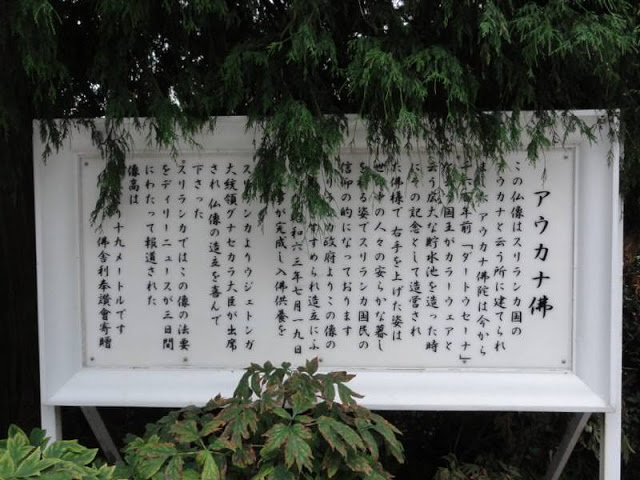 アウカナ佛
この仏像はスリランカ国の
ウカナと云う所に建てられ
は アウカナ佛陀は今から
百年前「ダートウセーナ」
国王がカラーウェアと
云う広大な貯水池を造った時
その記念として造営され
た佛様で 右手を上げた姿は
世 中の人々の安らかな暮し
を 姿でスリランカ国民の
信仰の的になっております
カ政府よりこの像の
すすめられ造立にふ
昭和六三年七月一九日
が完成し入佛供養を
ス ンカよりウジェトンガ
大統領グナセカラ大臣が出席
され 仏像の造立を喜んで
下さった
スリランカではこの像の法要
をディリーニュースが三日間
にわたって報道された
像高は
より十九メートルです
佛舎利奉讃會寄贈